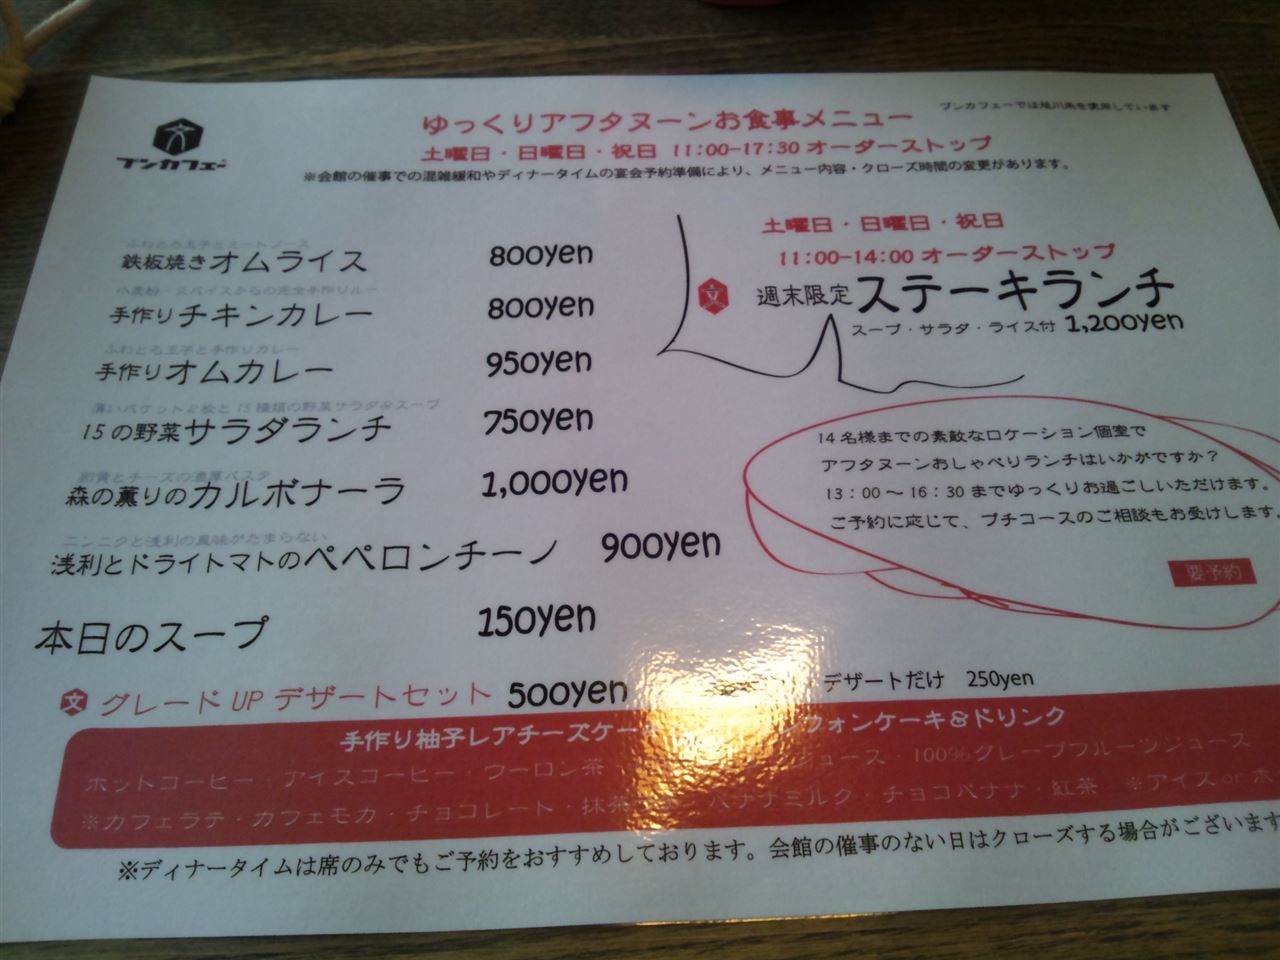 ブンカフェー
ブンカフェーでは旭川米を使用しています
ゆっくりアフタヌーンお食事メニュー
土曜日・日曜日・祝日 11:00-17:30オーダーストップ
※会館の催事での混雑緩和やディナータイムの宴会予約準備により、メニュー内容・クローズ時間の変更があります。
ふわとろ玉子とミートソース
鉄板焼きオムライス 800yen
小麦粉・スパイスからの完全手作りルー
手作りチキンカレー 800yen
ふわとろ玉子と手作りカレー
手作りオムカレー 950yen
薄いバケット2枚と15種類の野菜サラダ&スープ
15の野菜サラダランチ 750yen
卵黄とチーズの濃厚パスタ
森の薫りのカルボナーラ 1,000yen
ニンニクと浅利の風味がたまらない
浅利とドライトマトのペペロンチーノ 900yen
本日のスープ 150yen
土曜日・日曜日・祝日
11:00-14:00オーダーストップ
文 週末限定ステーキランチ
スープ・サラダ・ライス付 1,200yen
14名様までの素敵なロケーション個室で
アフタヌーンおしゃべりランチはいかがですか?
13:00〜16:30までゆっくりお過ごしいただけます。
ご予約に応じて、プチコースのご相談もお受けします。
要予約
文 グレードUPデザートセット 500yen
デザートだけ 250yen
手作り柚子レアチーズケー フォンケーキ&ドリンク
ホットコーヒー・アイスコーヒー・ウーロン茶 ジュース・100%グレープフルーツジュース
※カフェラテ・カフェモカ・チョコレート・抹茶 バナナミルク・チョコバナナ・紅茶 ※アイスorホ
※ディナータイムは席のみでもご予約をおすすめしております。会館の催事のない日はクローズする場合がございます